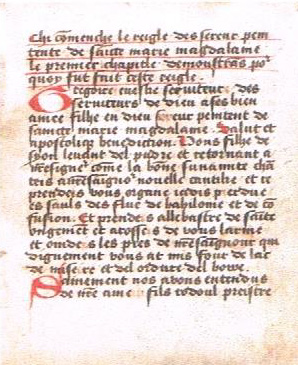 Chi cōmenche le reigle des sereur pem
tente de sainte marie magdalaine
le premier chapitle demoustras po^r
quoy fut fait ceste reigle.
Gregoire eueske seruiteur des
seruiteurs de dieu a ses bien
amee filhe en dieu sereur peintent de
saincte marie magdalaine. Salut et
apostolique benediction. Vous filhe de
syon leuant del pudre et retornant a
mēsigneur come la bone sunamite chā
teis a mēsaignor nouelle cantike et re
prendeis vous orguene iecois perdue
les sauls des flue de babilone et de cō
fusion. Et prendeis allebastre de sainte
ongement et atosseis de vous larme
et oindeis les pies de mēsaignour qui
dignement vous at mis four de lac
de misere et del ordure del bowe.
Sainement nos avons entendus
de me ame fils rodoul preistre